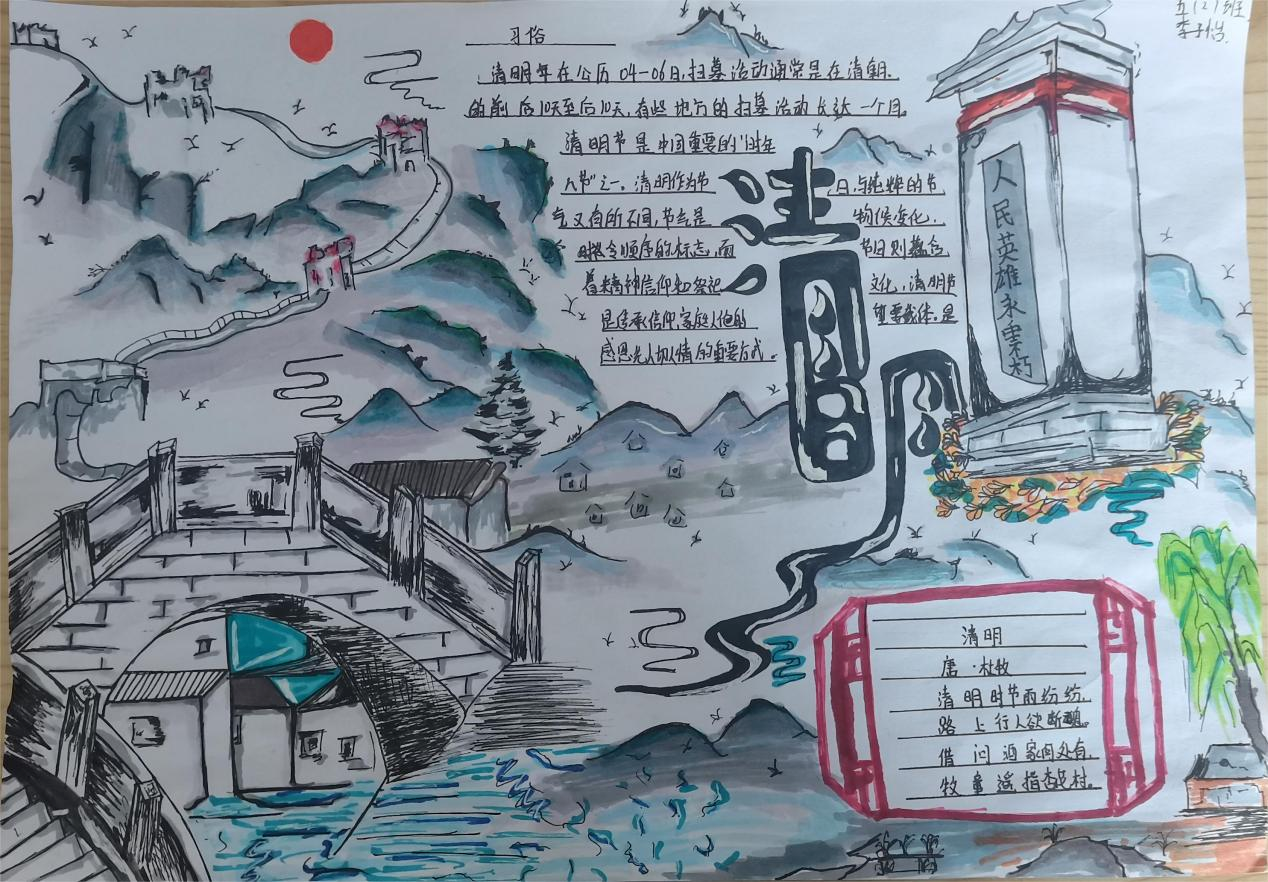 五(2)班
李子怡
习俗
清明年在公历04-06日,扫墓活动通常是在清明.
的前后10天至后10天,有些地方的扫墓活动长达一个月。
清明节是中国重要的"时年
八节"之一。清明作为节日,与纯粹的节
气又有所不同,节气是物候变化.
时令顺序的标志,而节日则蕴含
着精神信仰和祭祀文化,清明节
是传承信仰,家庭人伦的重要载体.是
感恩先人的重要方式。
清明
人民英雄永垂朽
清明
唐·杜牧
清明时节雨纷纷.
路上行人欲断魂。
借问酒家何处有.
牧童遥指杏村。